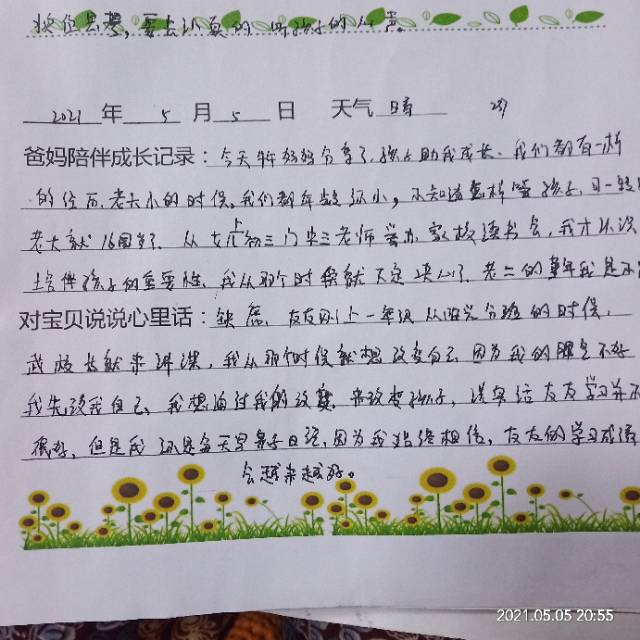 换位思考，要去认真的听孩子的心声。
2021 年 5 月 5 日 天气 晴
爸妈陪伴成长记录：今天 妈妈分享了，孩子助我成长，我们都有一样
的经历，老大小的时候，我们都年龄还小，不知道怎样 孩子，
老大就16周岁了，从女儿上初三 老师 家校读书会，我才
陪伴孩子的重要性，我从那个时候就下定决心了，老二的童年我是不
对宝贝说说心里话：缺席，友友刚上一年级从 分班的时候，
武校长就来讲课，我从那个时候就想改变自己，因为我的脾气不好
我先改我自己，我想通过我的改变，来改变孩子，其实 友友学习并不
很好，但是我还是每天 ，因为我始终相信，友友的学习成绩
会越来越好。
2021.05.05 20:55